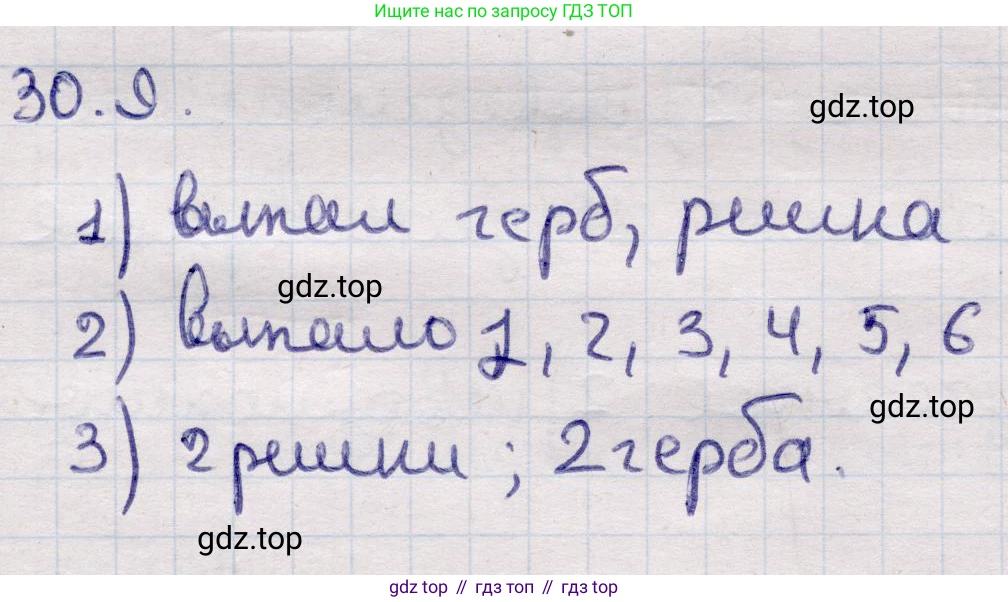 Ищите нас по запросу ГДЗ ТОП
30.9.
gdz.top
1) выпал герб, решка
gdz.top
2) выпало 1, 2, 3, 4, 5, 6
gdz.top
3) 2 решки; 2 герба.
gdz.top
gdz top // гдз топ // гдз top